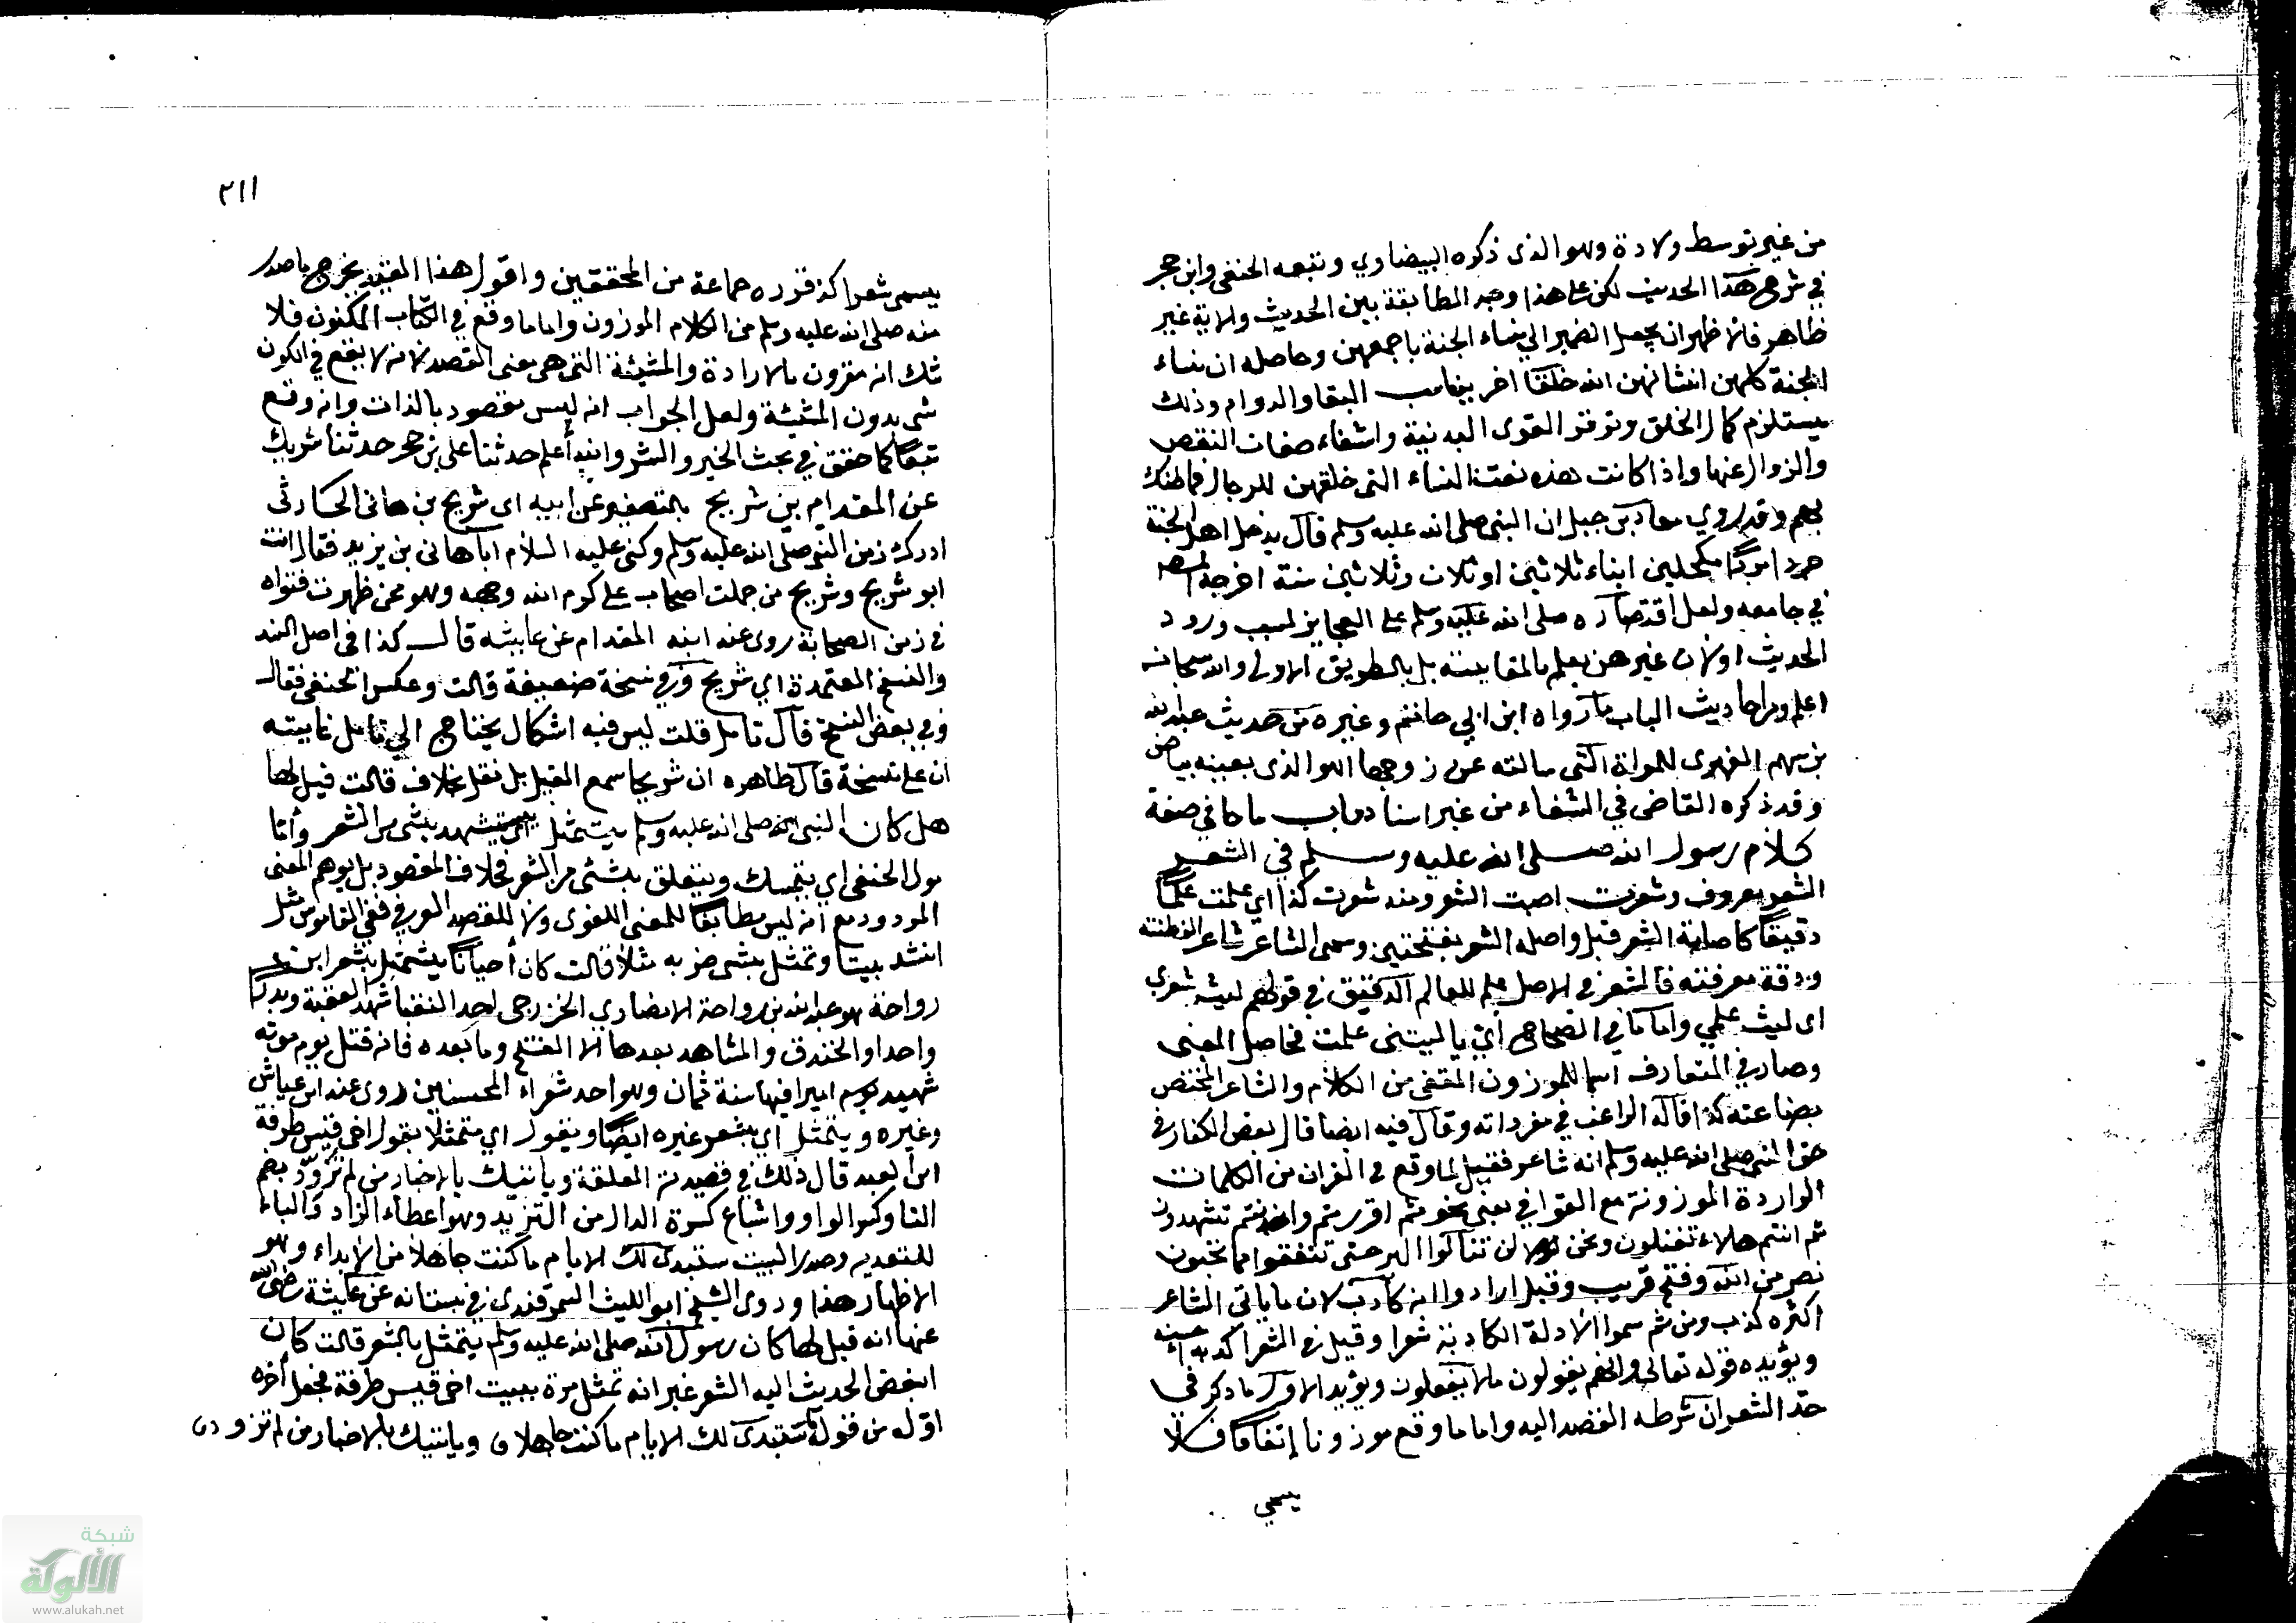 من غير توسط ولادة وهو الذى ذكره البيضاوي وتبعه الحنفى وابن حجر
في شرح هذا الحديث لكن على هذا وجه المطابقة بين الحديث والاية غير
ظاهر فالاظهر ان يجعل الضمير الي نساء الجنة باجمعهن وحاصله ان نساء
الجنة كلهن انشأنهن الله خلقا اخر يناسب البقا والدوام وذلك
يستلزم كمال الخلق وتوفر القوى البدنية وانتفاء صفات النقص
والزوال عنها واذا كانت هذه نعت النساء التى خلقهن للرجال فما ظنك
بهم وقد روي معاذ بن جبل ان النبى صلى الله عليه وسلم قال يدخل اهل الجنة
جردا مردا مكحلين ابناء ثلاثين او ثلاث وثلاثين سنة اخرجه المص
في جامعه ولعل اقتصاره صلى الله عليه وسلم على العجايز لسبب ورود
الحديث او لان غيرهن يعلم بالمقايسة بل بالطريق الاولى والله سبحانه
اعلم ومن احاديث الباب ما رواه ابن ابي حاتم وغيره من حديث عبد الله
بن سهم الفهرى للمراة التى سالته عن زوجها اهو الذى بعينه بياض
وقد ذكره القاضى في الشفاء من غير اسناد باب ما جا في صفة
كلام رسول الله صلى الله عليه وسلم في الشعر
الشعر معروف وشعرت اصبت الشعر ومنه شعرت كذا اي علمت علما
دقيقا كاصابة الشعر قيل واصله الشعر بفتحتين وسمى الشاعر شاعرا لفطنته
ودقة معرفته فالشعر في الاصل علم للعالم الدقيق في قولهم ليت شعري
اى ليت علمي واما ما في الصحاح اي يا ليتنى علمت فحاصل المعنى
وصار في المتعارف اسما للموزون المقفى من الكلام والشاعر المختص
بصناعته كذا قاله الراغب في مفرداته وقال فيه ايضا قال بعض الكفار في
حق النبى صلى الله عليه وسلم انه شاعر فقيل لما وقع في القران من الكلمات
الواردة الموزونة مع القوافي يعنى نحو ثم اقررتم وانتم تشهدون
ثم انتم هلاء تقتلون ونحن لن تنالوا البر حتى تنفقوا مما تحبون
نصر من الله وفتح قريب وقيل ارادوا انه كاذب لان ما ياتى الشاعر
اكثره كذب ومن ثم سموا الادلة الكاذبة شعرا وقيل في الشعر اكذبه احسنه
ويؤيده قوله تعالى وانهم يقولون ما لا يفعلون ويؤيد الاول ما ذكر في
حد الشعر ان شرطه القصد اليه واما ما وقع موزونا إتفاقا فلا
يسمي
٢١١
يسمى شعرا كذ قرره جماعة من المحققين واقول هذا القيد يخرج ما صدر
منه صلى الله عليه وسلم من الكلام الموزون واما ما وقع في الكتاب المكنون فلا
شك انه مقرون بالارادة والمشيئة التى هى معنى القصد لانه لا يقع في الكون
شى بدون المشيئة ولعل الجواب انه ليس مقصود بالذات وانه وقع
تبعا كما حقق في بحث الخير والشر والله أعلم حدثنا على بن حجر حدثنا شريك
عن المقدام بن شريح بالتصغير عن ابيه اى شريح بن هانى الحارثى
ادرك زمن النبى صلى الله عليه وسلم وكنى عليه السلام اباه هانى بن يزيد فقال انت
ابو شريح وشريح من جملت اصحاب على كرم الله وجهه وهو ممن ظهرت فتواه
في زمن الصحابة روى عنه ابنه المقدام عن عايشه قال كذا في اصل السند
والنسخ المعتمدة اي شريح وفي نسخة ضعيفة قالت وعكس الحنفى فقال
وفي بعض النسخ قال تامل قلت ليس فيه اشكال يحتاج الي تامل غايته
ان على نسخة قال ظاهره ان شريحا سمع القيل بل نقل بخلاف قالت قيل لها
هل كان النبى صلى الله عليه وسلم يتمثل اى يستشهد بشى من الشعر وأما
قول الحنفى اي يتمسك ويتعلق بشئ من الشعر فخلاف المقصود بل يوهم المعنى
المردود مع انه ليس مطابقا للمعنى اللغوى ولا للمقصد العرفي ففي القاموس تمثل
انشد بيتا وتمثل بشى ضربه مثلا قالت كان أحيانا يتمثل بشعر ابن
رواحة هو عبد الله بن رواحة الانصاري الخزرجى احد النقبا شهد العقبة وبدرا
واحدا والخندق والمشاهد بعدها الا الفتح وما بعده فانه قتل يوم موته
شهيدا اميرا فيها سنة ثمان وهو احد شعراء المحسنين روى عنه ابن عباس
وغيره ويتمثل اي بشعر غيره ايضا ويقول اي متمثلا بقول اخى قيس طرفة
ابن العبد قال ذلك في قصيدته المعلقة ويأتيك بالاخبار من لم تزود بضم
التا وكسر الواو واشباع كسرة الدال من التزيد وهو اعطاء الزاد والباء
للتعديه وصدر البيت ستبدى لك الايام ما كنت جاهلا من الابداء وهو
الاظهار هذا وروى الشيخ ابو الليث السمرقندى في بستانه عن عايشة رضى الله
عنها انه قيل لها كان رسول الله صلى الله عليه وسلم يتمثل بالشعر قالت كان
ابغض الحديث اليه الشعر غير انه تمثل مرة ببيت اخى قيس طرفة فجعل أخره
اوله من قوله ستبدى لك الايام ما كنت جاهلا وياتيك بالاخبار من لم تزود
شبكة
الألوكة
www.alukah.net